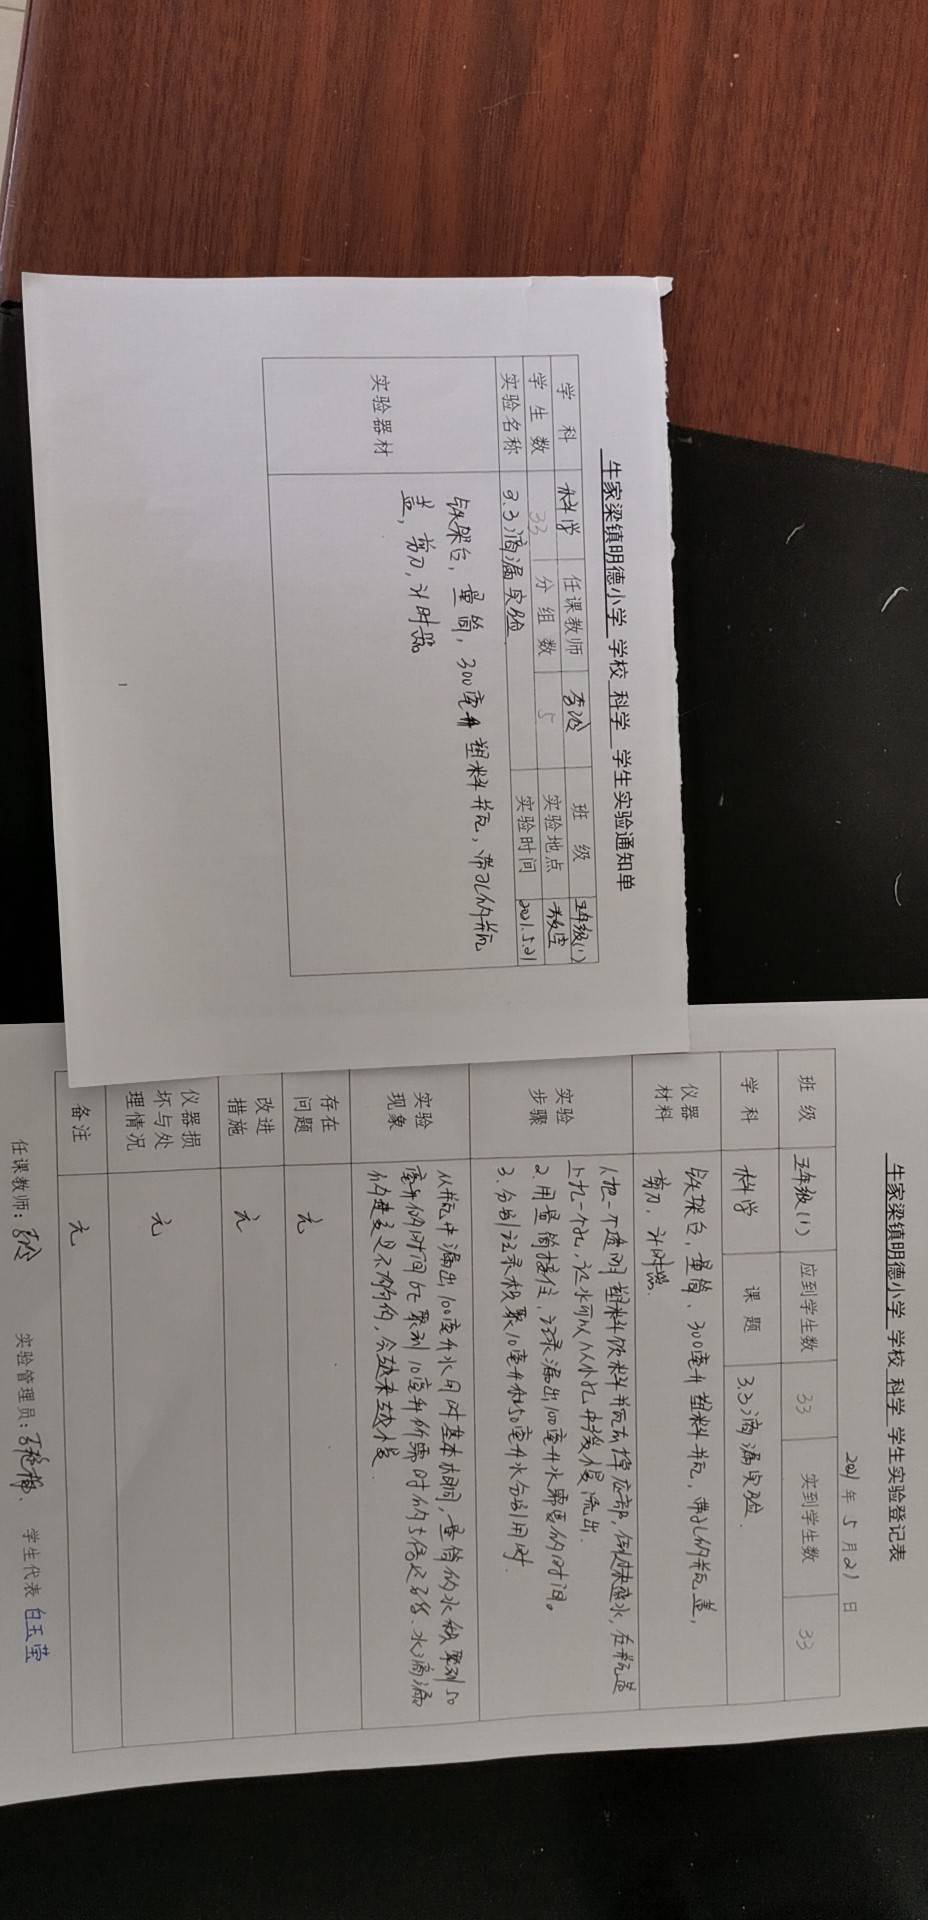 牛家梁镇明德小学 学校 科学 学生实验通知单
学 科 科学 任课教师 李波 班 级 五年级(1)
学 生 数 33 分 组 数 5 实验地点 教室
实验名称 3.3滴漏实验 实验时间 2021.5.21
实验器材
铁架台，量筒，300毫升塑料瓶，带孔的瓶
盖，剪刀，计时器
1
牛家梁镇明德小学 学校 科学 学生实验登记表
2021年 5月21日
班 级 五年级(1) 应到学生数 33 实到学生数 33
学 科 科学 课 题 3.3滴漏实验.
仪器
材料
铁架台，量筒、300毫升塑料瓶，带孔的瓶盖，
剪刀、计时器.
实验
步骤
1.把一个透明塑料饮料瓶去掉底部，倒过来装水，在瓶盖
上扎一个孔，让水可以从小孔中慢慢流出.
2.用量筒接住，记录漏出100毫升水需要的时间。
3.分别记录积聚10毫升和50毫升水分别用时.
实验
现象
从瓶中漏出100毫升水用时基本相同，量筒的水积聚到50
毫升的时间比聚到10毫升所需时的5倍还多. 水滴漏
的速度是不均的，会越来越慢.
存在
问题
无
改进
措施
无
仪器损
坏与处
理情况
无
备注
无
任课教师： 实验管理员： 学生代表 白玉莹